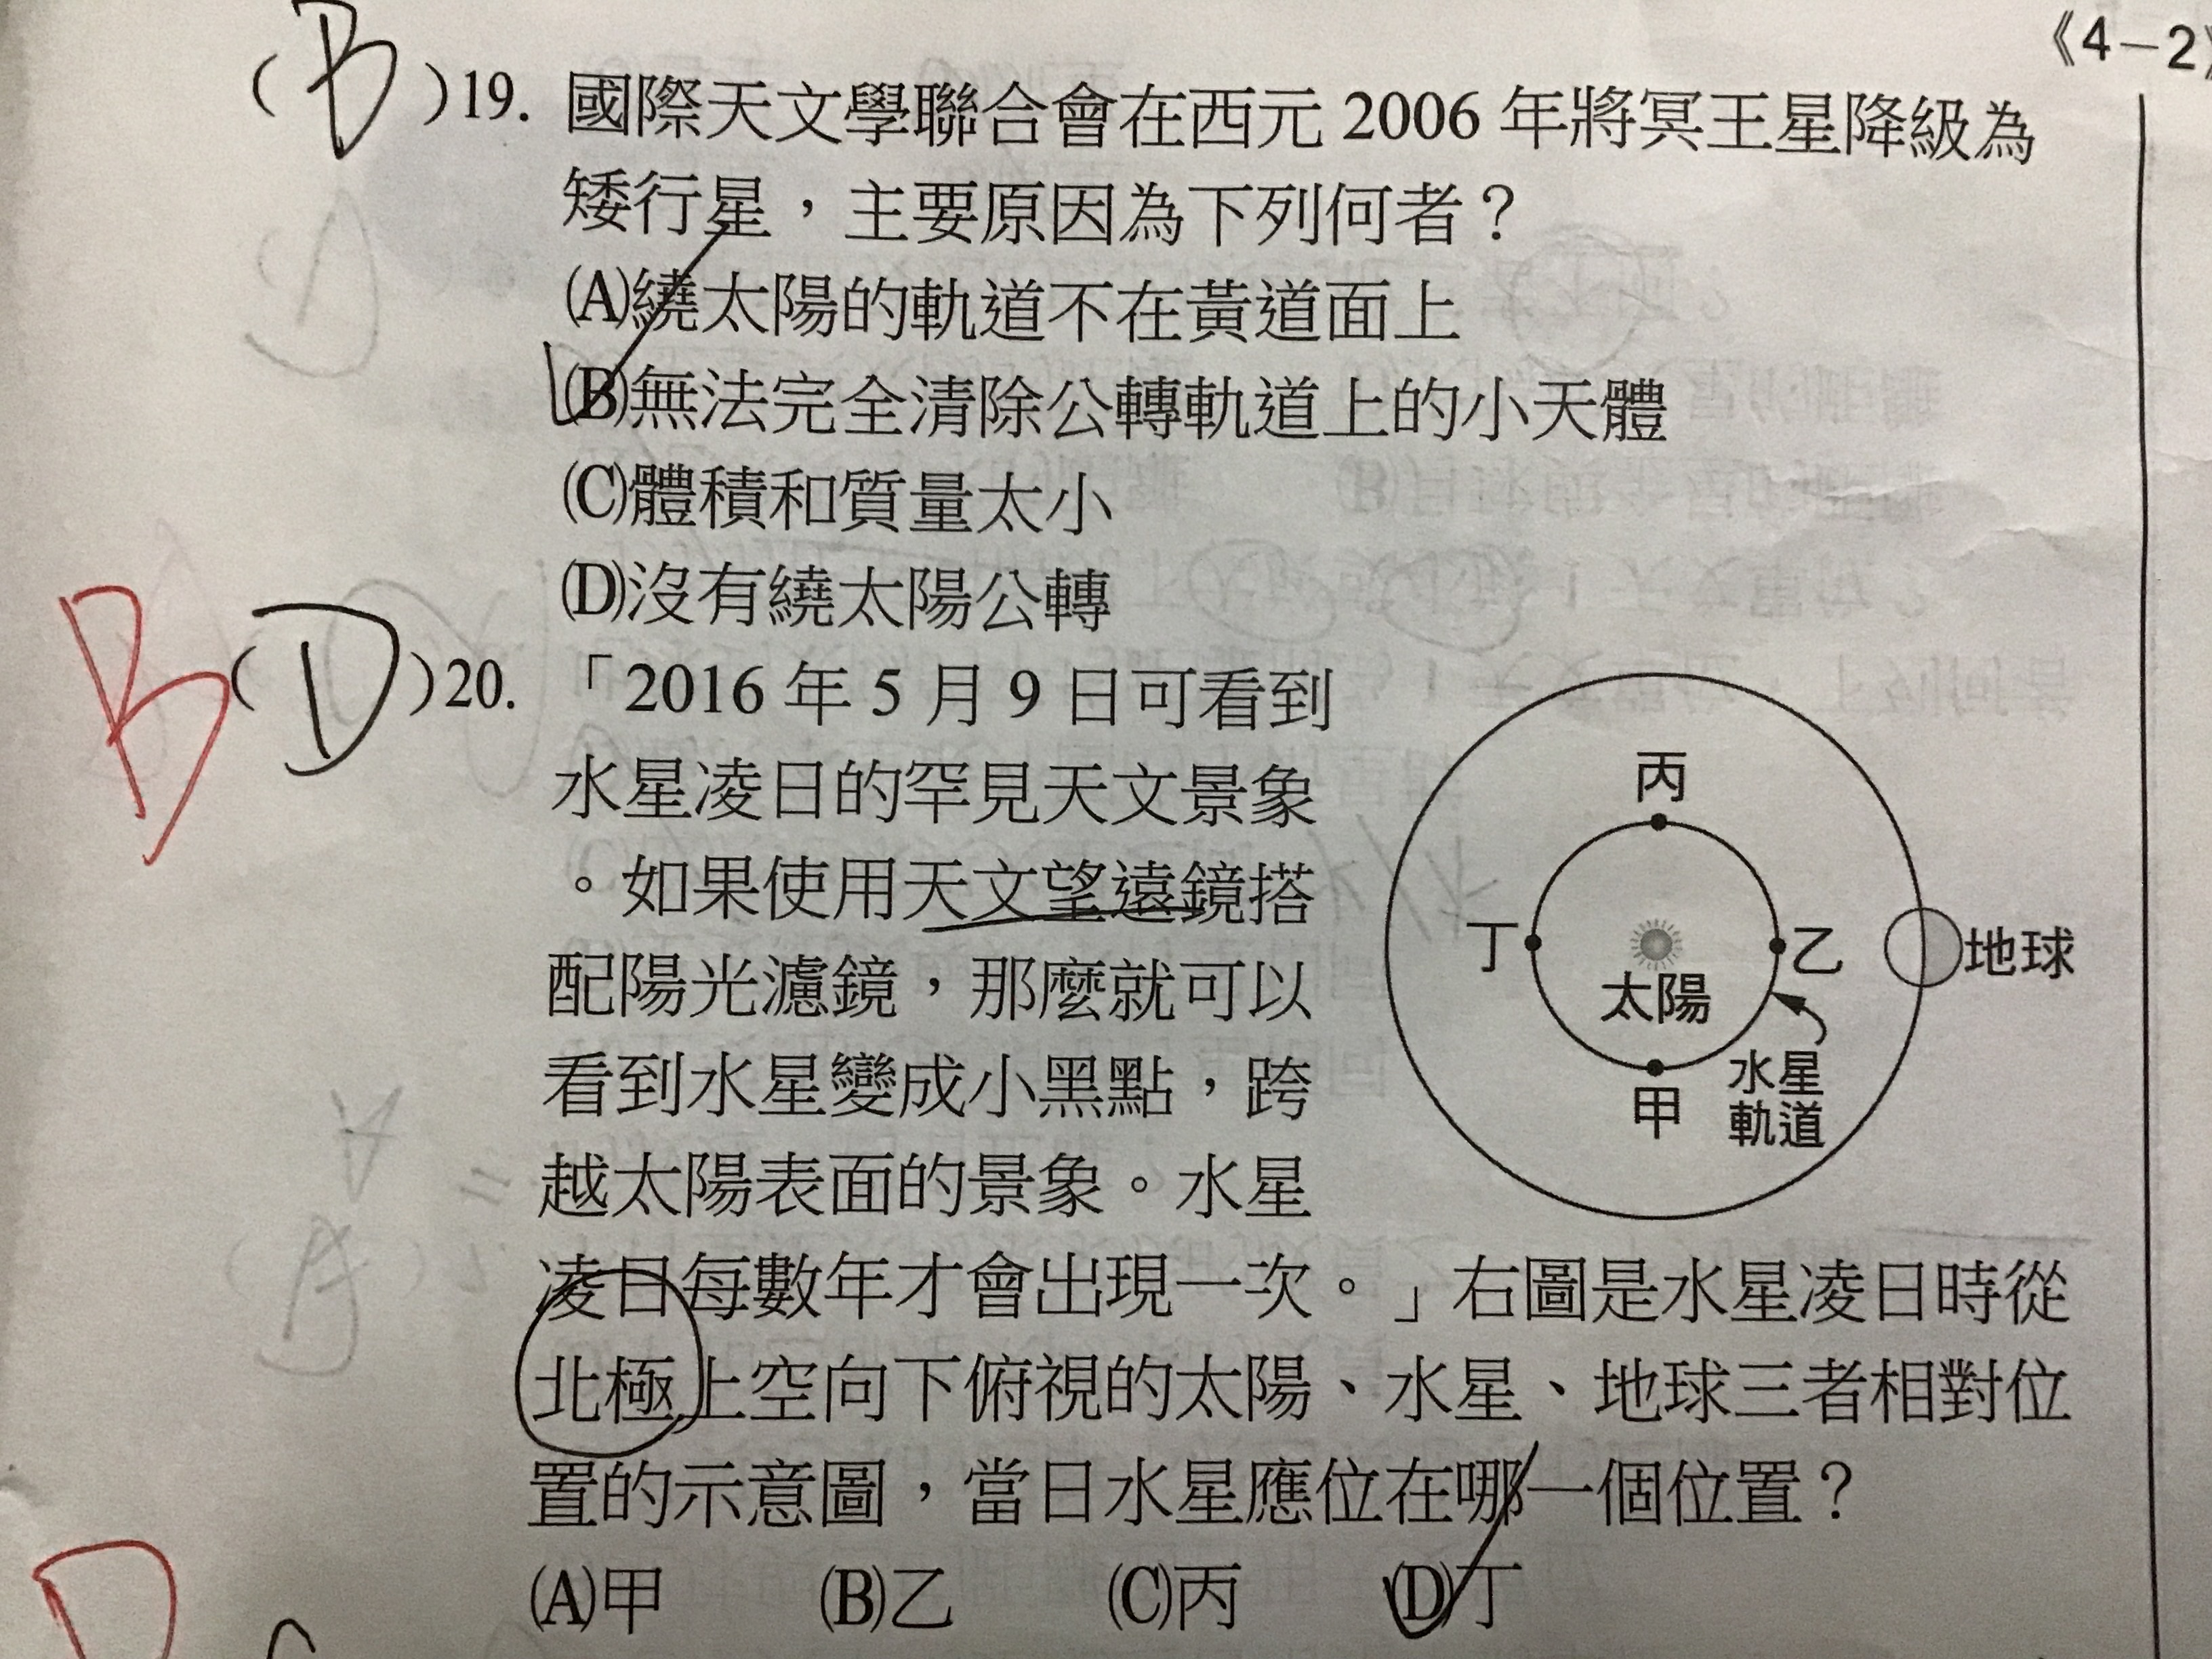 《4－2》
(B)19. 國際天文學聯合會在西元 2006 年將冥王星降級為
矮行星，主要原因為下列何者？
(A)繞太陽的軌道不在黃道面上
(B)無法完全清除公轉軌道上的小天體
(C)體積和質量太小
(D)沒有繞太陽公轉
B(D)20. 「2016 年 5 月 9 日可看到
水星凌日的罕見天文景象
。如果使用天文望遠鏡搭
配陽光濾鏡，那麼就可以
看到水星變成小黑點，跨
越太陽表面的景象。水星
凌日每數年才會出現一次。」右圖是水星凌日時從
北極上空向下俯視的太陽、水星、地球三者相對位
置的示意圖，當日水星應位在哪一個位置？
(A)甲 (B)乙 (C)丙 (D)丁
丙
丁
乙
地球
太陽
甲
水星
軌道
D